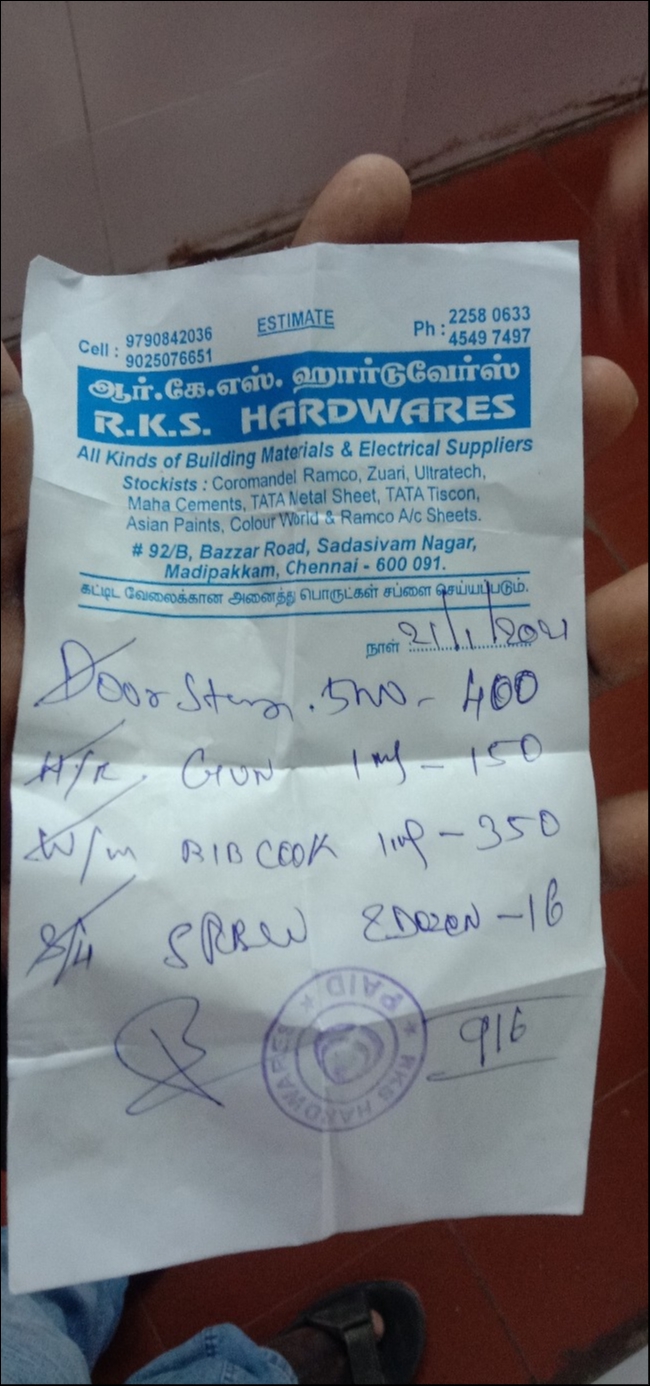 ESTIMATE
Cell : 9790842036
9025076651
Ph : 2258 0633
4549 7497
ஆர்.கே.எஸ். ஹார்டுவேர்ஸ்
R.K.S. HARDWARES
All Kinds of Building Materials & Electrical Suppliers
Stockists : Coromandel Ramco, Zuari, Ultratech,
Maha Cements, TATA Metal Sheet, TATA Tiscon,
Asian Paints, Colour World & Ramco A/c Sheets.
# 92/B, Bazzar Road, Sadasivam Nagar,
Madipakkam, Chennai - 600 091.
கட்டிட வேலைக்கான அனைத்து பொருட்கள் சப்ளை செய்யப்படும்.
நாள் 21/1/2021
Door - 400
GUN - 150
W/m BIB COOK - 350
SRBW 2DOZEN - 16
916
RKS HARDWARES ★ PAID ★